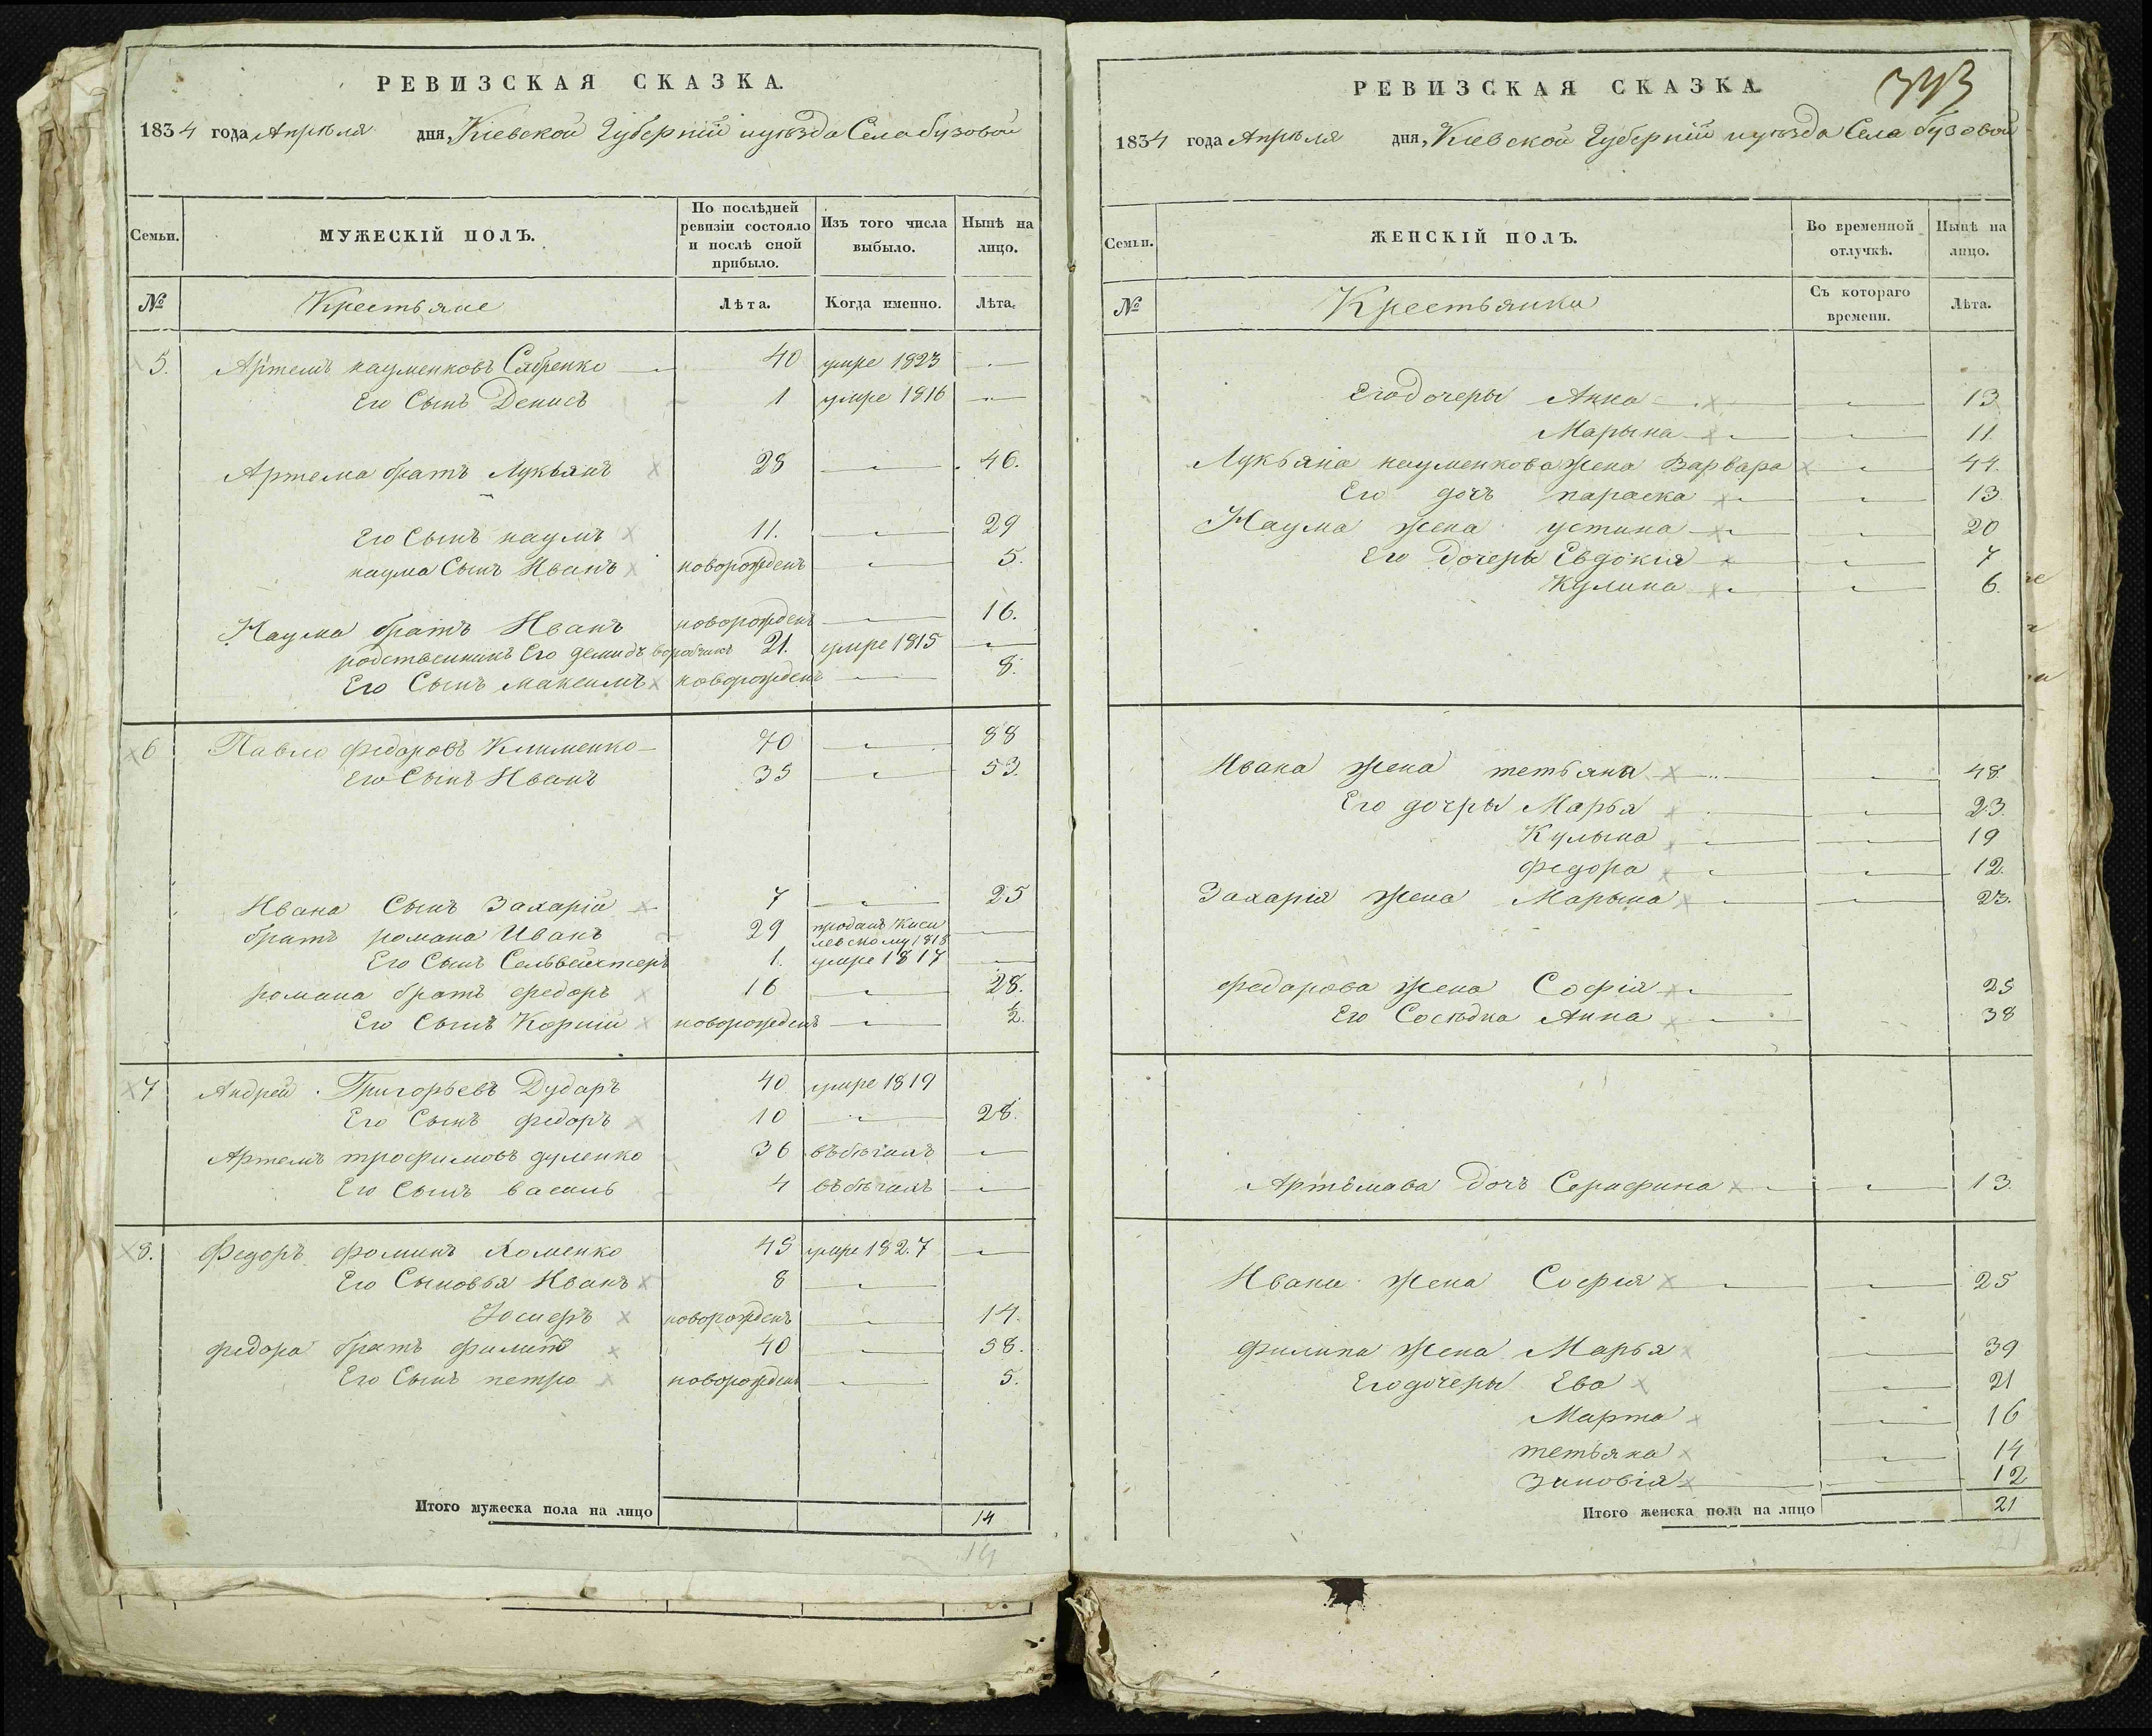 РЕВИЗСКАЯ СКАЗКА.
1834 года Апрѣля дня, Кіевской Губерніи и уѣзда Села бузовой
Семьи. МУЖЕСКІЙ ПОЛЪ. По послѣдней ревизіи состояло и послѣ оной прибыло. Изъ того числа выбыло. Нынѣ на лицо.
№ Крестьяне Лѣта. Когда именно. Лѣта.
5. Артемъ науменковъ Сябренко 40 умре 1823
Его Сынъ Денисъ 1 умре 1816
Артема братъ Лукьянъ 28 46.
Его Сынъ наумъ 11. 29
наума Сынъ Иванъ новорожденъ 5.
Наума братъ Иванъ новорожденъ 16.
родственникъ Его демидъ 21. умре 1815
Его Сынъ максимъ новорожденъ 8.
6 Павло федоровъ Клименко 70 88
Его Сынъ Иванъ 35 53.
Ивана Сынъ Захарій 7 25
братъ романа Иванъ 29 проданъ Киси
левскому 1818
Его Сынъ 1. умре 1817
романа братъ федоръ 16 28.
Его Сынъ Корній новорожденъ ½.
7 Андрей Григорьевъ Дударъ 40 умре 1819
Его Сынъ федоръ 10 28.
Артемъ трофимовъ дуленко 36 въ бѣгахъ
Его Сынъ василь 4 въ бѣгахъ
8. Федоръ фоминъ хоменко 45 умре 1827
Его Сыновья Иванъ 8
Іосифъ новорожденъ 14.
федора братъ филипъ 40 58.
Его Сынъ петро новорожденъ 5.
Итого мужеска пола на лицо 14
14
РЕВИЗСКАЯ СКАЗКА.
1834 года Апрѣля дня, Кіевской Губерніи и уѣзда Села бузовой
Семьи. ЖЕНСКІЙ ПОЛЪ. Во временной отлучкѣ. Нынѣ на лицо.
№ Крестьянки Съ котораго времени. Лѣта.
Его дочеры Анна 13
Марына 11
Лукьяна науменкова жена Варвара 44.
Его дочъ параска 13
Наума жена устина 20
Его дочеры Евдокія 7
Кулина 6.
Ивана жена тетьяна 48
Его дочры Марья 23.
Кулына 19
федора 12.
Захарія жена Марына 23.
федарова жена Софія 25
Его Сосѣдка Анна 38
Артѣмава дочъ Серафина 13.
Ивана жена Софія 25
филипа жена Марья 39
Его дочеры Ева 21
Марта 16
тетьяна 14
Зиновія 12
Итого женска пола на лицо 21